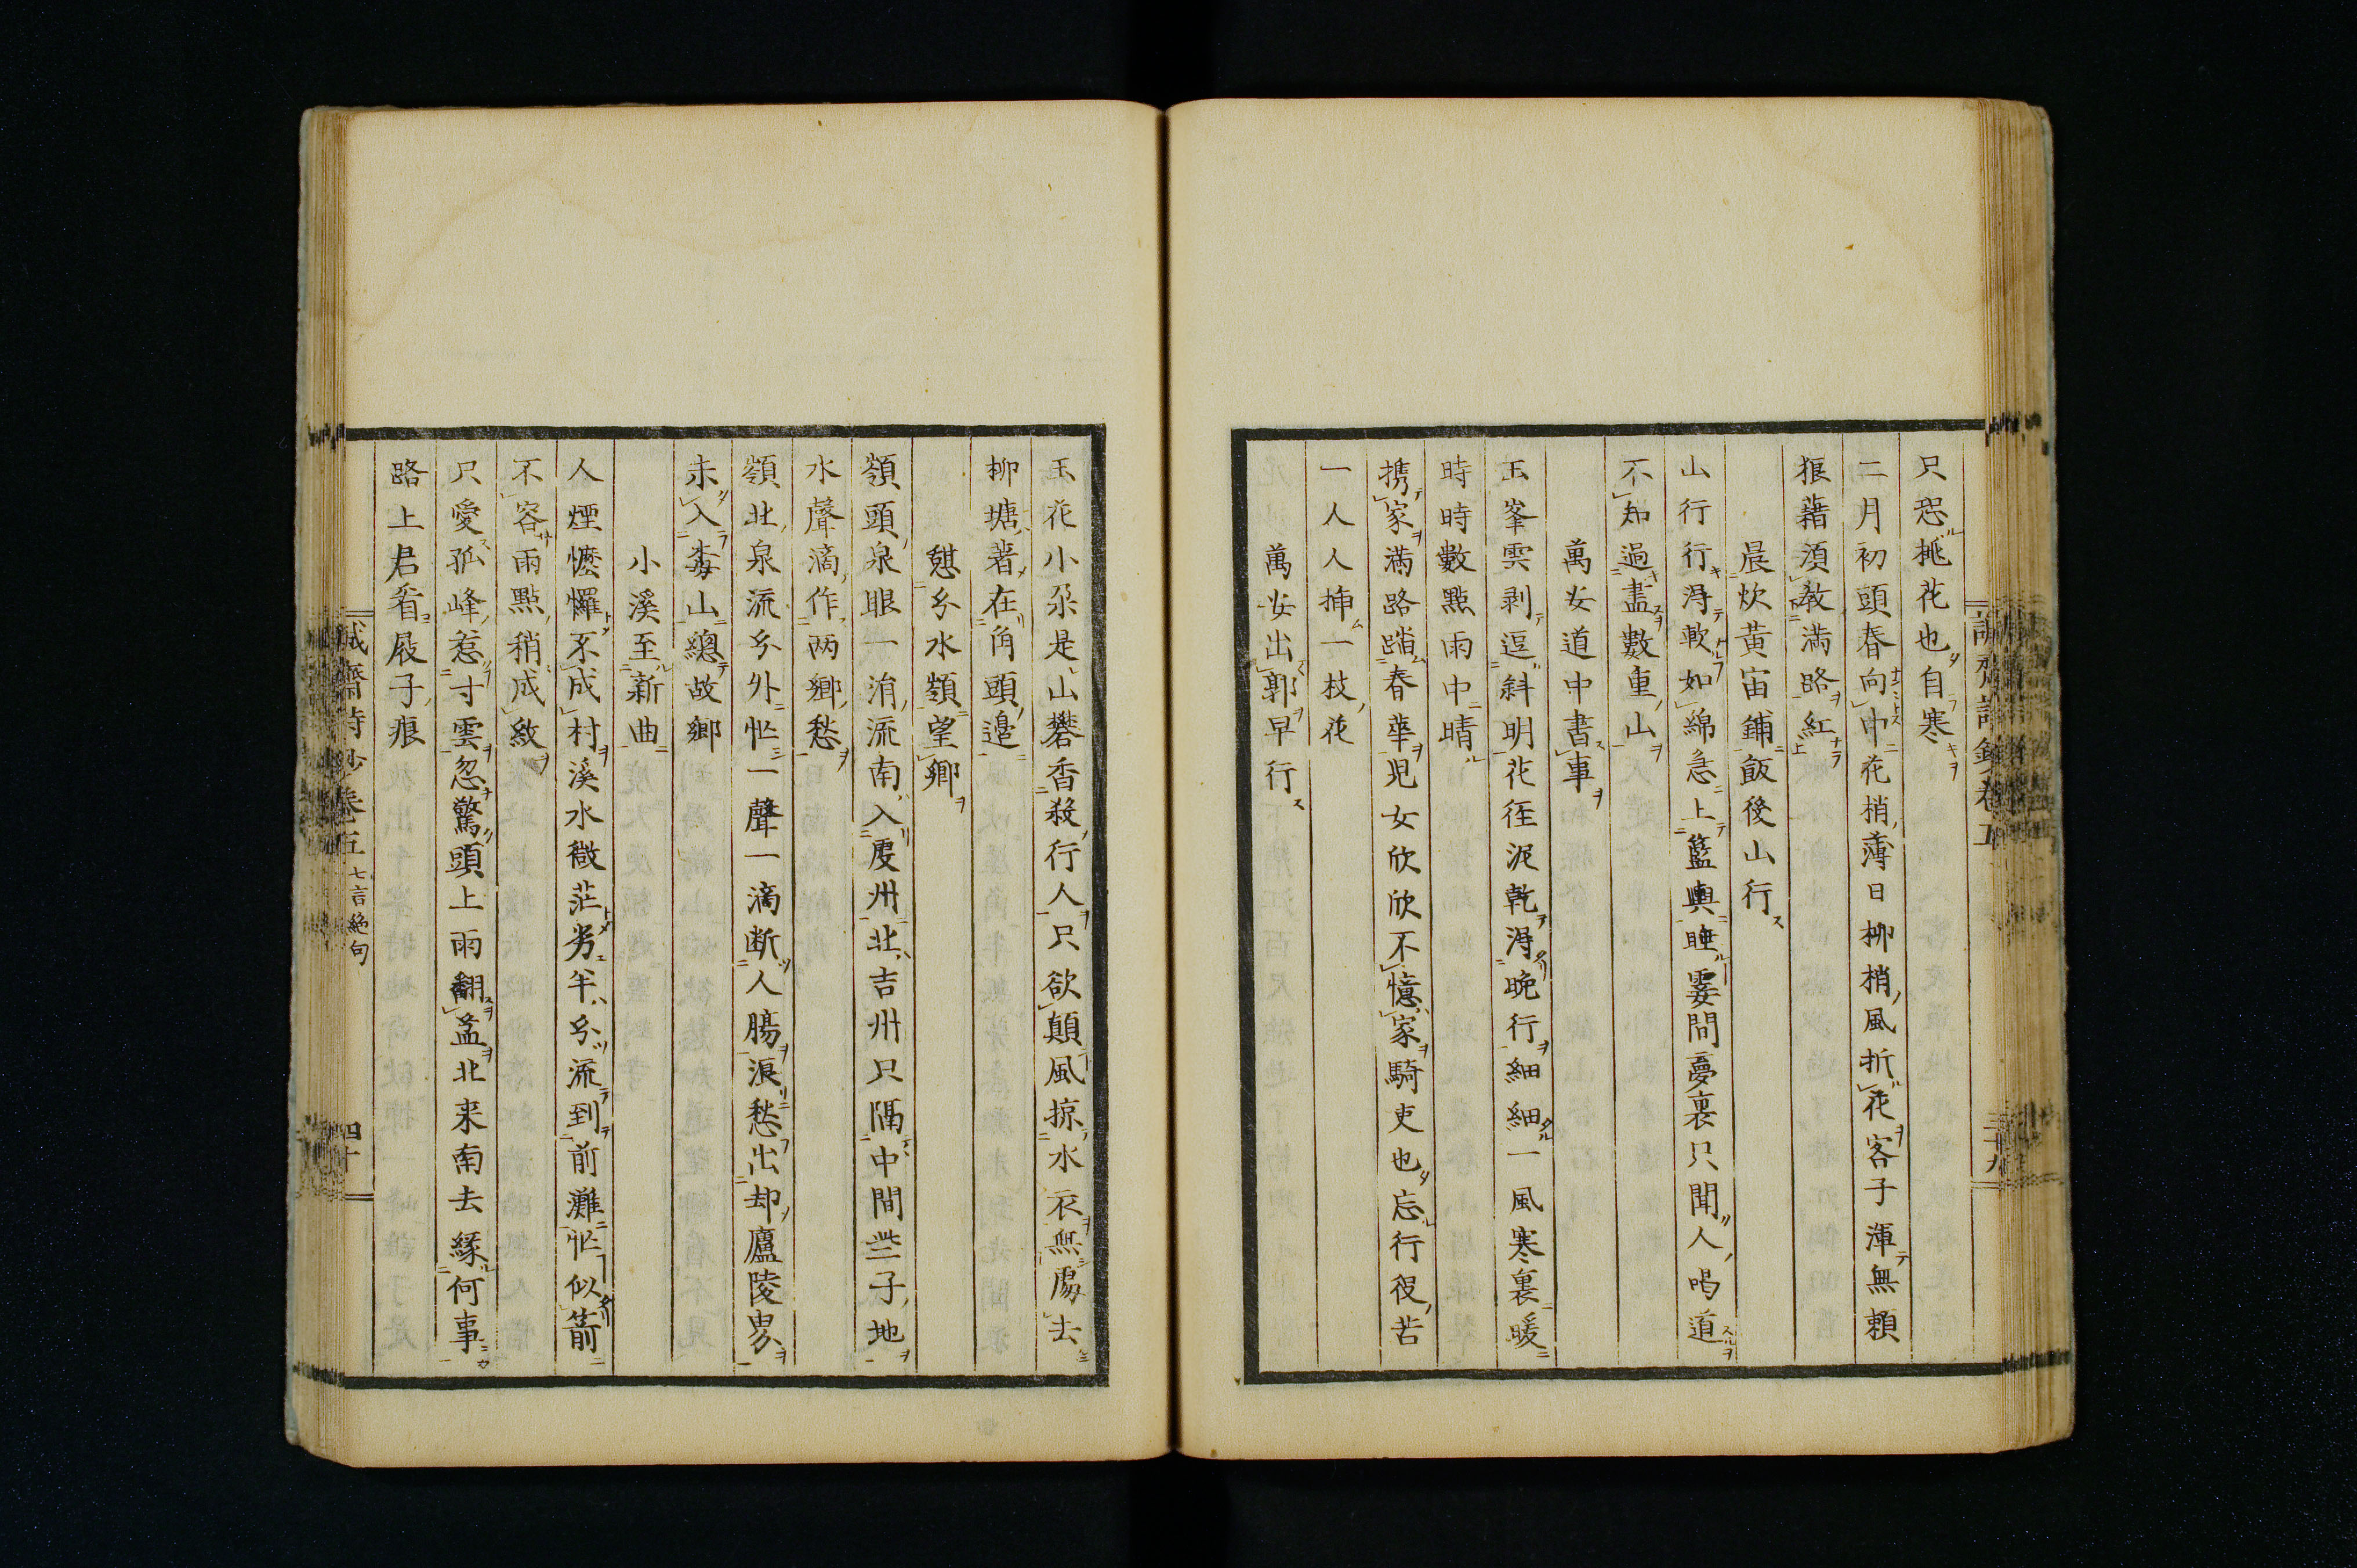 只恐桃花也自寒
二月初頭春向中花梢薄日柳梢風折花客子渾無頼
狼藉須教満路紅
晨炊黃宙鋪飯後山行
山行行得軟如綿急上籃輿睡霎間夢裏只聞人喝道
不知過盡數重山
萬安道中書事
玉峯雲剥逗斜明花徑泥乾得晚行細細一風寒裏暖
時時數點雨中晴
携家満路踏春華児女欣欣不憶家騎吏也忘行役苦
一人人揷一枝花
萬安出郭早行
玉花小朶是山礬香殺行人只欲顛風掠水衣無處去
柳塘著在角頭邊
憇分水嶺望鄉
嶺頭泉眼一涓流南入虔州北吉州只隔中間些子地
水聲滴作兩鄉愁
嶺北泉流分外忙一聲一滴断人腸浪愁出却廬陵界
未入梅山總故鄉
小溪至新曲
人煙懡㦬不成村溪水微茫劣半分流到前灘忙似箭
不容雨點稍成紋
只愛孤峰惹寸雲忽驚頭上雨翻盆北来南去縁何事
路上君看屐子痕
誠齋詩鈔卷五 七言絶句 四十
誠齋詩鈔卷五 三十九